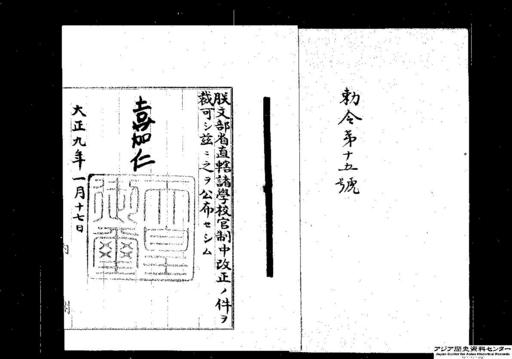 勅令第十五號
朕文部省直轄諸學校官制中改正ノ件ヲ
裁可シ茲ニ之ヲ公布セシム
嘉仁
天皇
御璽
大正九年一月十七日
内閣
アジア歴史資料センター
Japan Center for Asian Historical Records